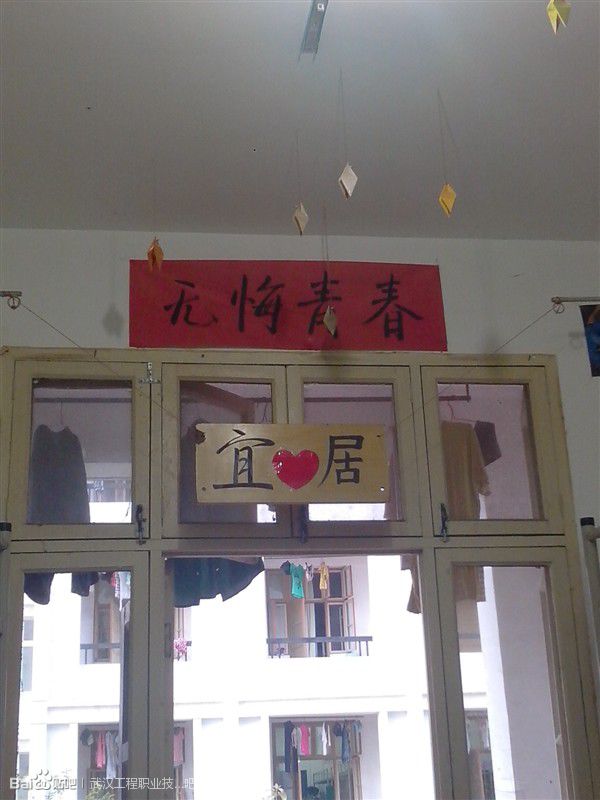 无悔青春
宜居
Bai贴吧 | 武汉工程职业技...吧